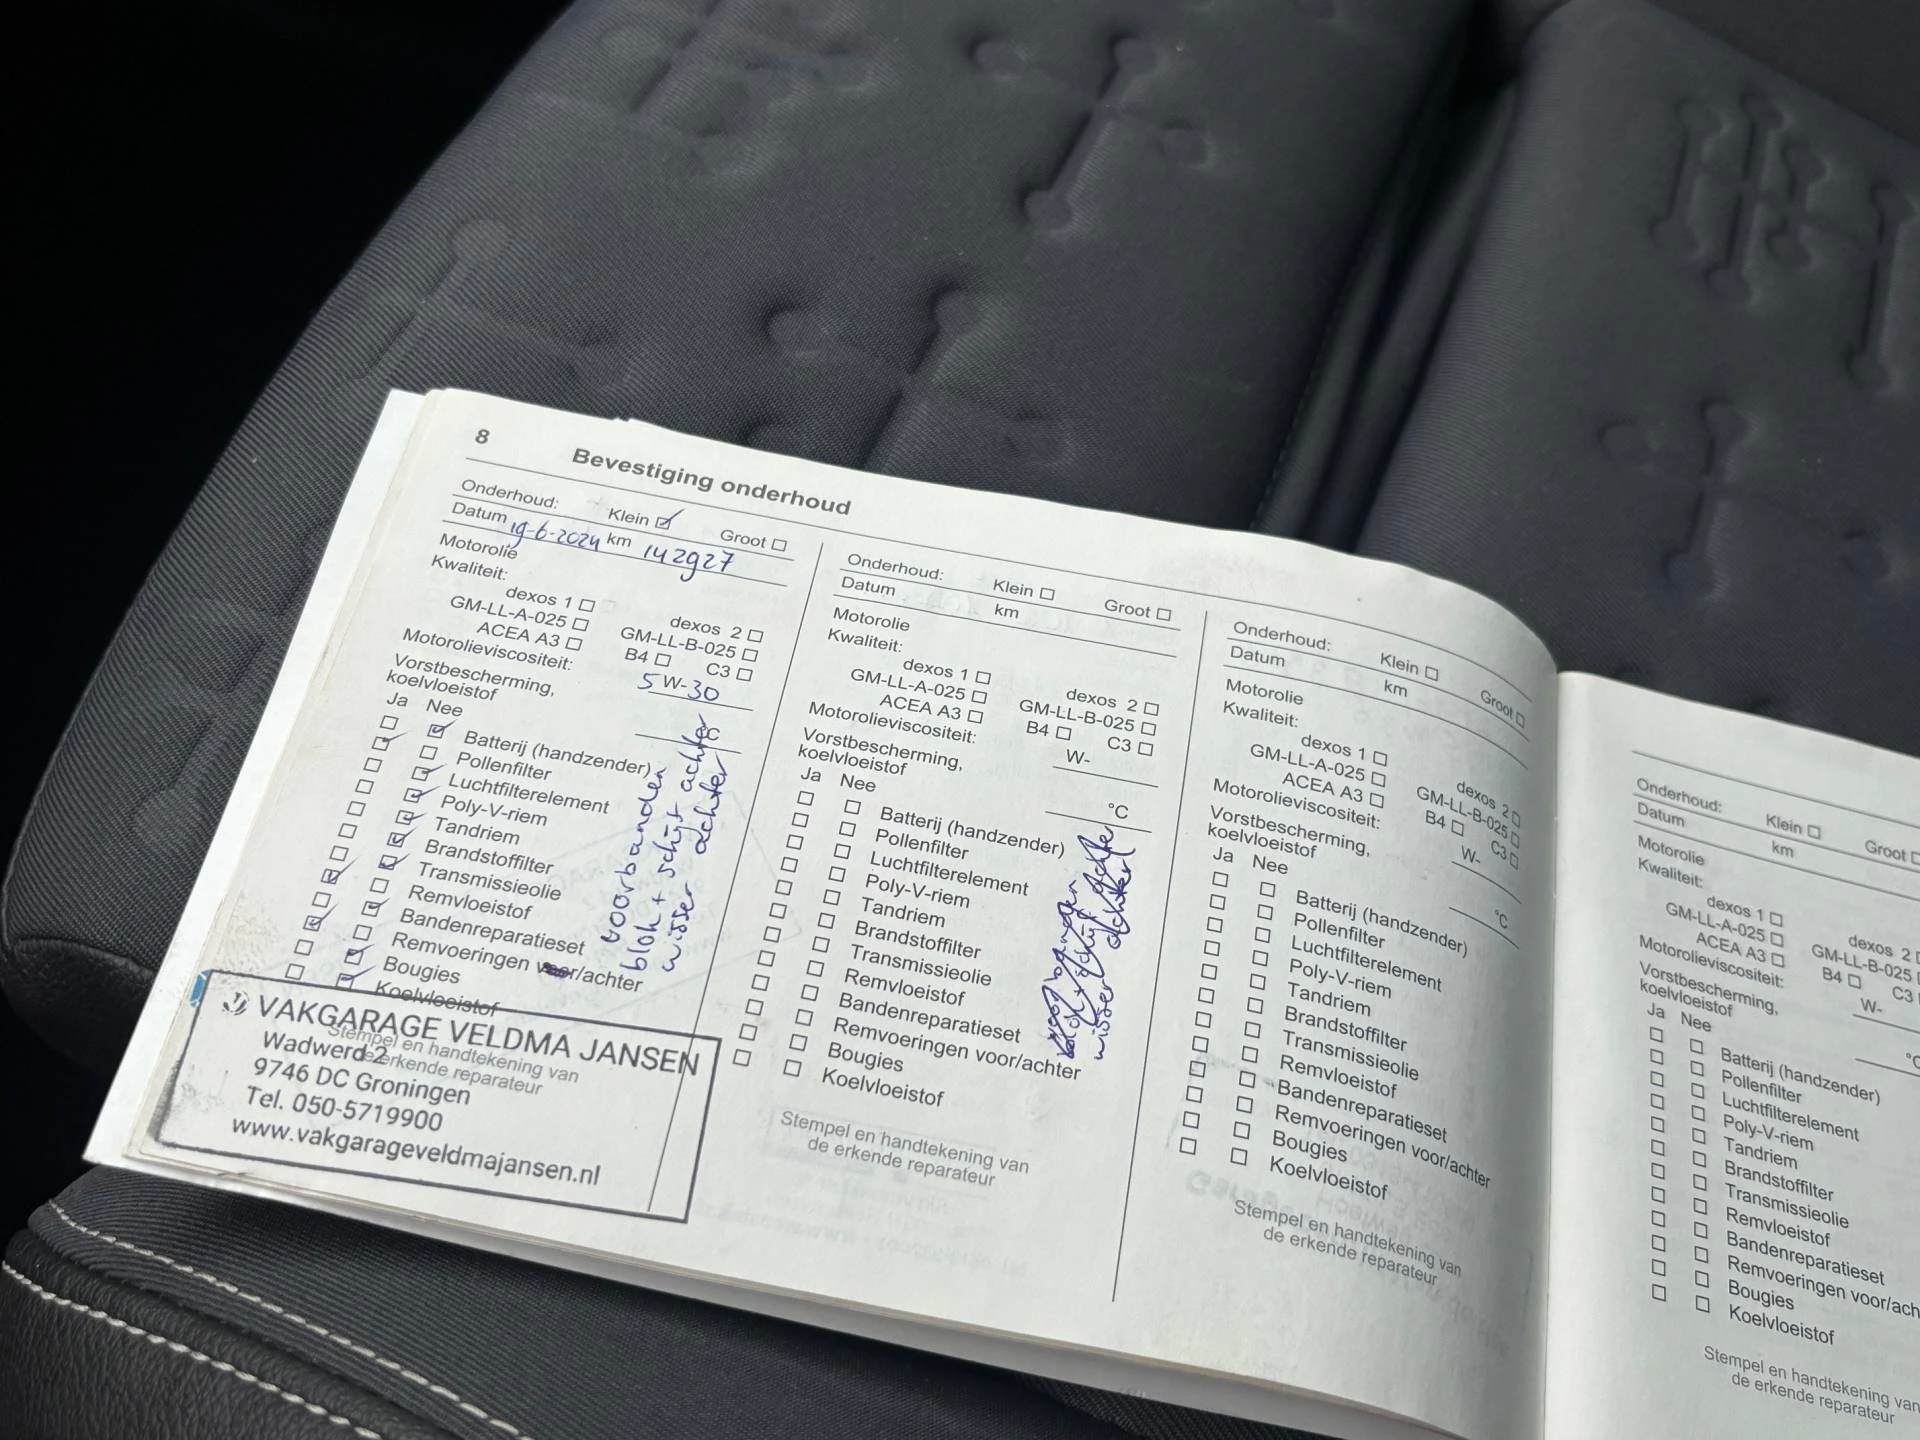 8
Bevestiging onderhoud
Onderhoud: Klein Groot
Datum 19-6-2024 km 142927
Motorolie
Kwaliteit:
dexos 1 dexos 2
GM-LL-A-025 GM-LL-B-025
ACEA A3 B4 C3
Motorolieviscositeit: 5 W-30
Vorstbescherming,
koelvloeistof °C
Ja Nee
Batterij (handzender)
Pollenfilter
Luchtfilterelement
Poly-V-riem
Tandriem
Brandstoffilter
Transmissieolie
Remvloeistof
Bandenreparatieset
Remvoeringen voor/achter
Bougies
Koelvloeistof
voorbanden
blok + schijf achter
wisser achter
Stempel en handtekening van
de erkende reparateur
VAKGARAGE VELDMA JANSEN
Wadwerd 2
9746 DC Groningen
Tel. 050-5719900
www.vakgarageveldmajansen.nl
Onderhoud: Klein Groot
Datum km
Motorolie
Kwaliteit:
dexos 1 dexos 2
GM-LL-A-025 GM-LL-B-025
ACEA A3 B4 C3
Motorolieviscositeit: W-
Vorstbescherming,
koelvloeistof °C
Ja Nee
Batterij (handzender)
Pollenfilter
Luchtfilterelement
Poly-V-riem
Tandriem
Brandstoffilter
Transmissieolie
Remvloeistof
Bandenreparatieset
Remvoeringen voor/achter
Bougies
Koelvloeistof
voorbanden
blok + schijf achter
wisser achter
Stempel en handtekening van
de erkende reparateur
Onderhoud: Klein Groot
Datum km
Motorolie
Kwaliteit:
dexos 1 dexos 2
GM-LL-A-025 GM-LL-B-025
ACEA A3 B4 C3
Motorolieviscositeit: W-
Vorstbescherming,
koelvloeistof °C
Ja Nee
Batterij (handzender)
Pollenfilter
Luchtfilterelement
Poly-V-riem
Tandriem
Brandstoffilter
Transmissieolie
Remvloeistof
Bandenreparatieset
Remvoeringen voor/achter
Bougies
Koelvloeistof
Stempel en handtekening van
de erkende reparateur
Onderhoud: Klein Groot
Datum km
Motorolie
Kwaliteit:
dexos 1 dexos 2
GM-LL-A-025 GM-LL-B-025
ACEA A3 B4 C3
Motorolieviscositeit: W-
Vorstbescherming,
koelvloeistof °C
Ja Nee
Batterij (handzender)
Pollenfilter
Luchtfilterelement
Poly-V-riem
Tandriem
Brandstoffilter
Transmissieolie
Remvloeistof
Bandenreparatieset
Remvoeringen voor/ach
Bougies
Koelvloeistof
Stempel en handtekening van
de erkende reparateur